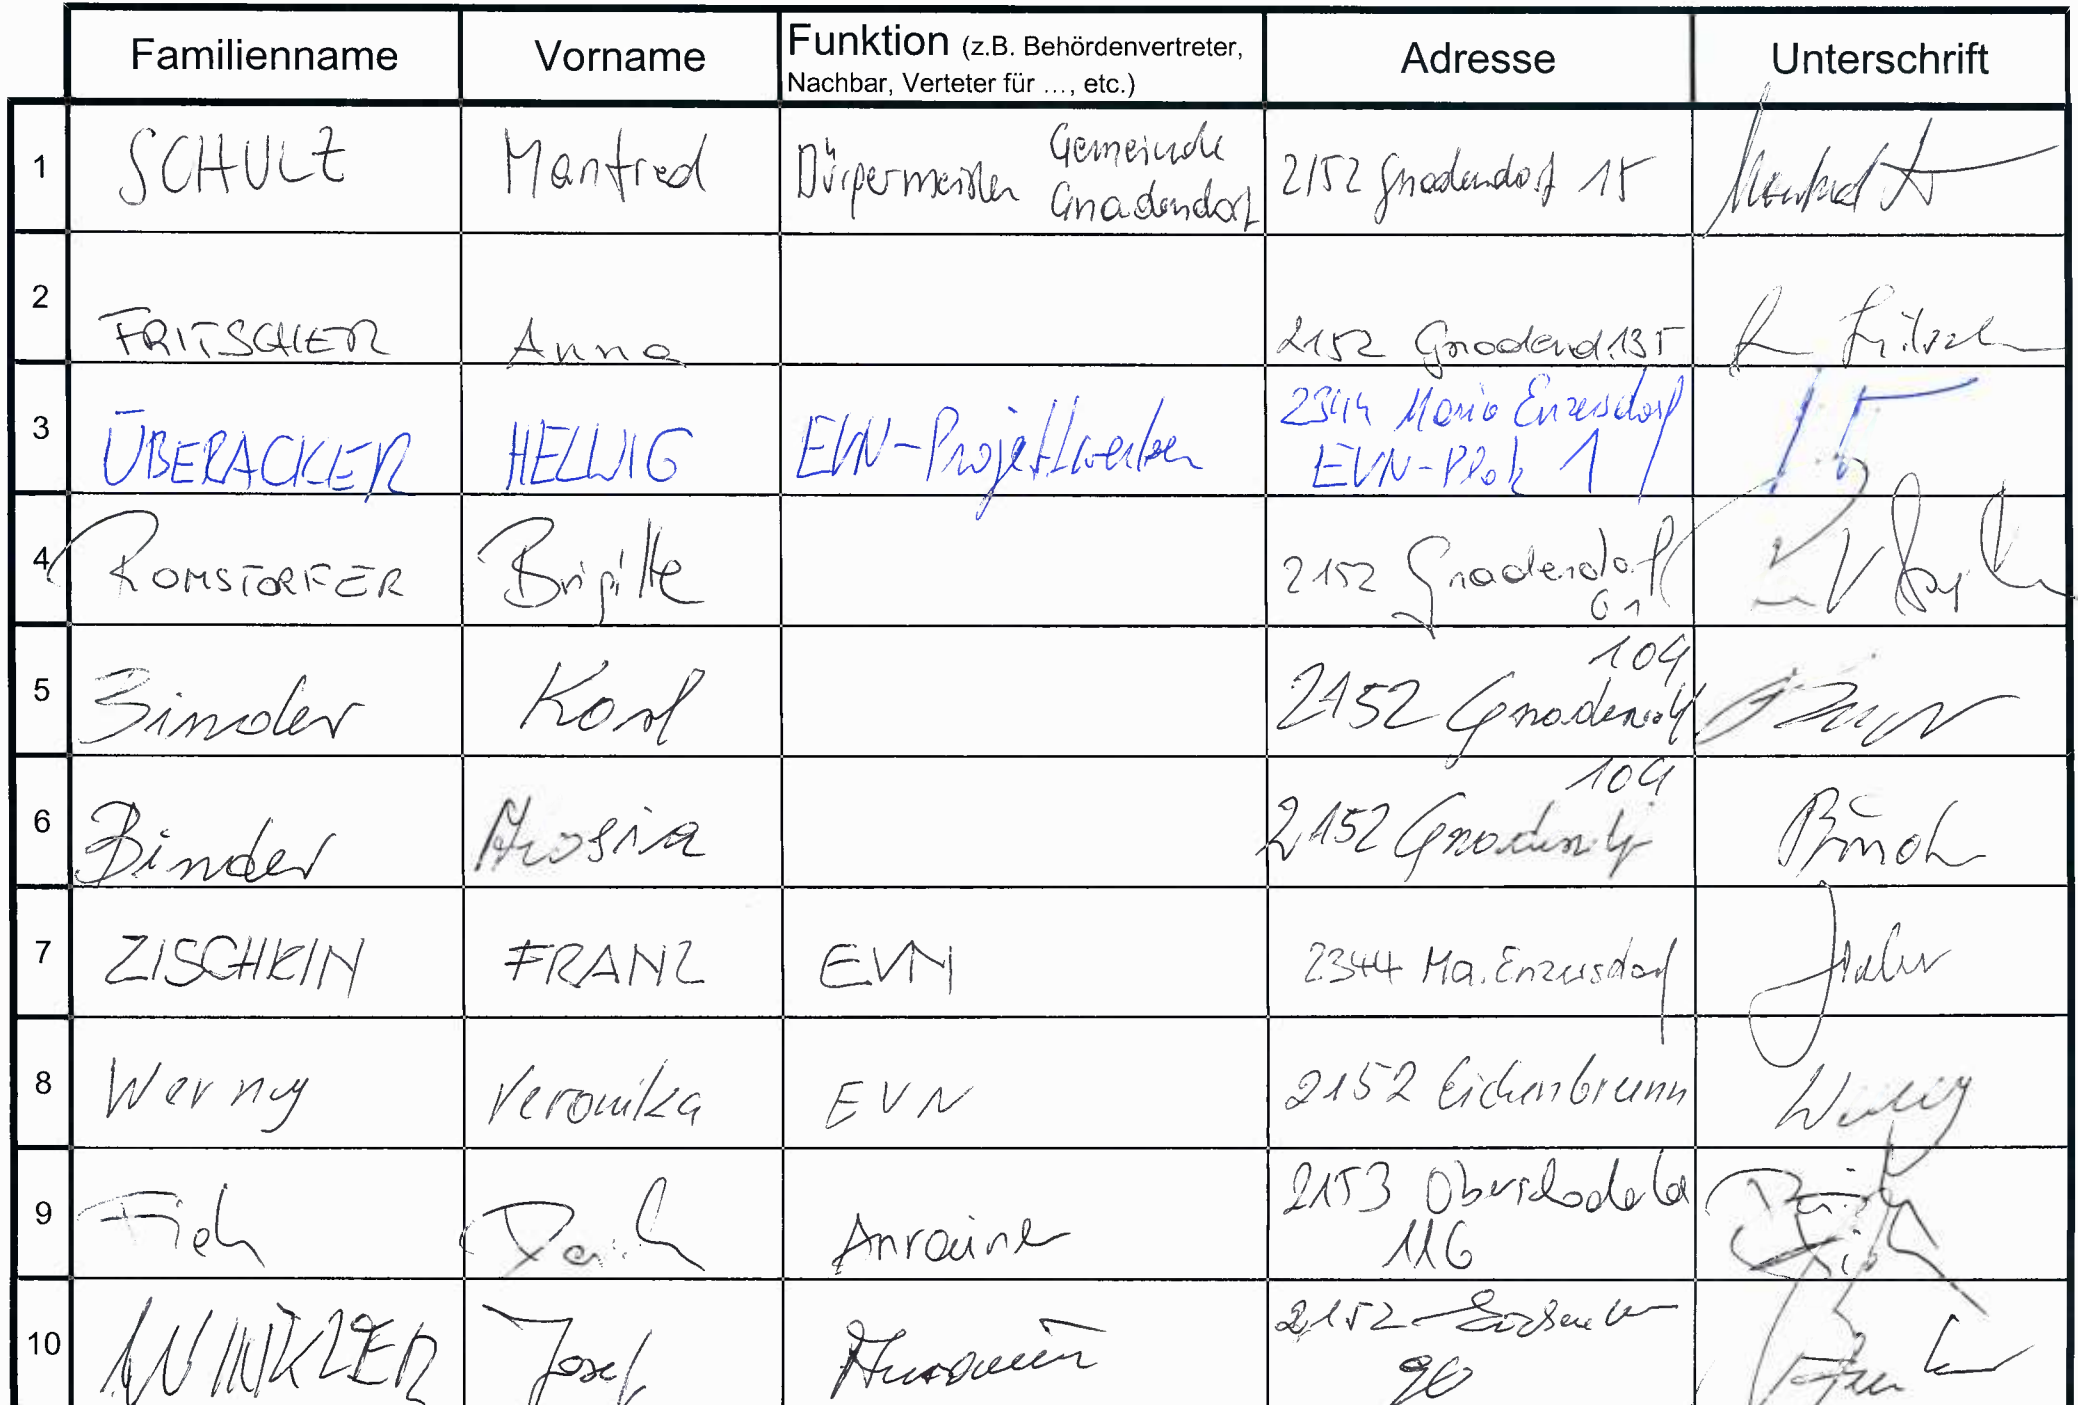 Familienname Vorname Funktion (z.B. Behördenvertreter, Nachbar, Verteter für ..., etc.) Adresse Unterschrift
1 SCHULZ Manfred Bürgermeister Gemeinde Gnadendorf 2152 Gnadendorf 15
2 FRITSCHER Anna 2152 Gnadend. 135
3 ÜBERACKER HELWIG EVN-Projektwerber 2344 Maria Enzersdorf EVN-Platz 1
4 ROMSTORFER Brigitte 2152 Gnadendorf 61
5 Binder Karl 2152 Gnadendorf 104
6 Binder 2152 Gnadendorf 104
7 ZISCHKIN FRANZ EVN 2344 Ma. Enzersdorf
8 Werny Veronika EVN 2152 Eichenbrunn
9 Anrainer 2153 116
10 WINKLER Josef Anrainer 2152 90